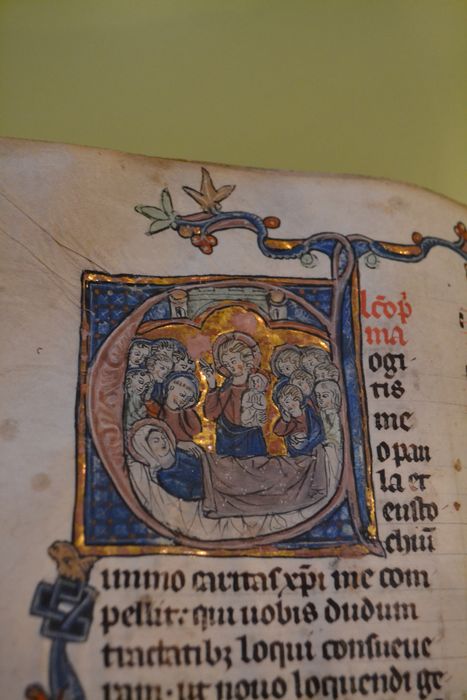 ogi
tis
me
o pau
la et
eusto
chiū
immo caritas xp̄i me com
pellit: qui uobis dudum
tractatibȝ loqui consueue
ram: ut nouo loquendi ge